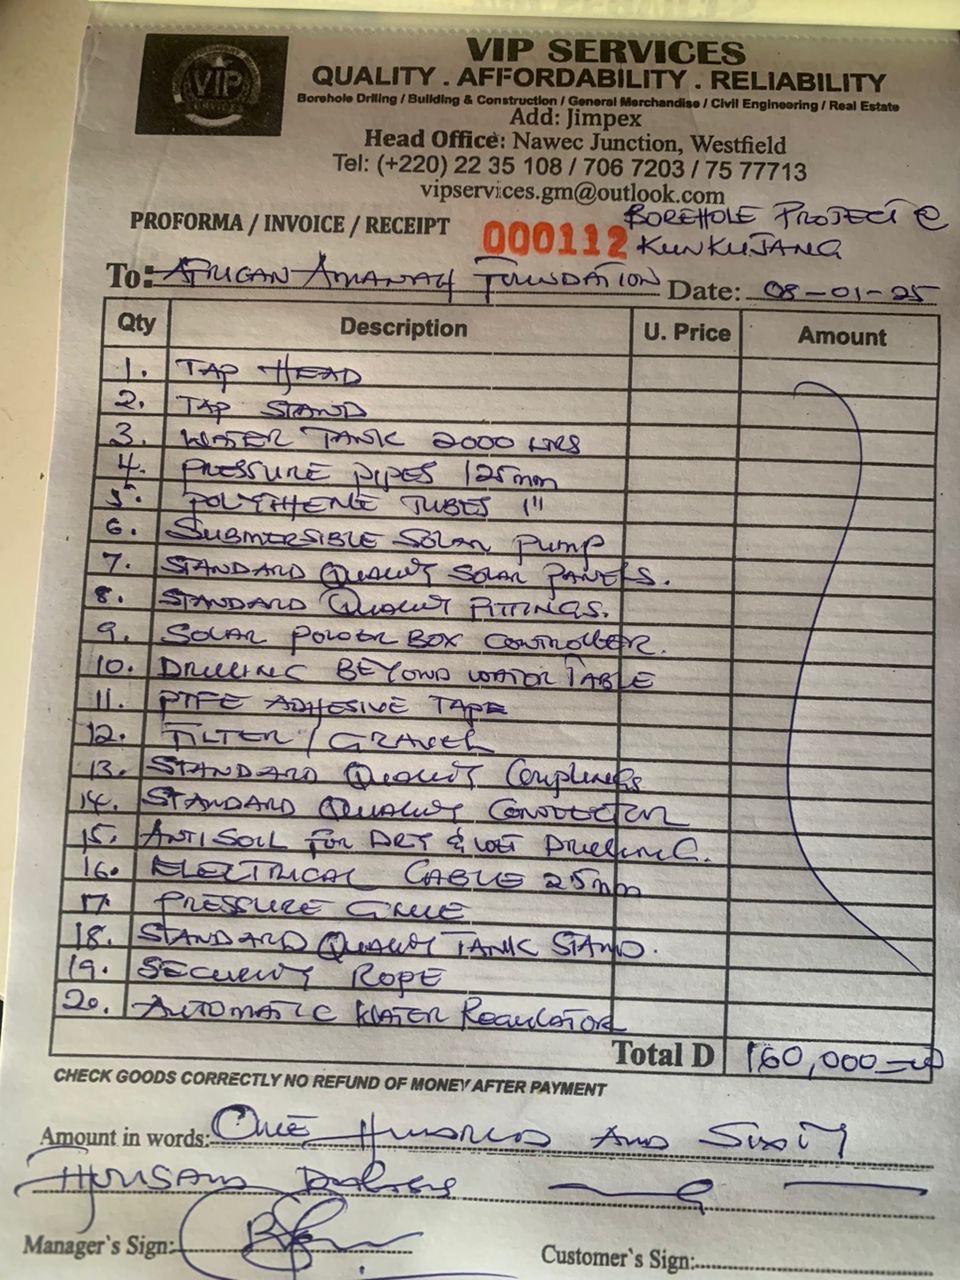 VIP
SERVICES
VIP SERVICES
QUALITY . AFFORDABILITY . RELIABILITY
Borehole Drilling / Building & Construction / General Merchandise / Civil Engineering / Real Estate
Add: Jimpex
Head Office: Nawec Junction, Westfield
Tel: (+220) 22 35 108 / 706 7203 / 75 77713
vipservices.gm@outlook.com
PROFORMA / INVOICE / RECEIPT 000112 BOREHOLE PROJECT @
KUNKUJANG
To: AFRICAN AMANAH FOUNDATION Date: 08-01-25
Qty Description U. Price Amount
1. TAP HEAD
2. TAP STAND
3. WATER TANK 2000 LTRS
4. PRESSURE PIPES 125mm
5. POLYTHENE TUBES 1"
6. SUBMERSIBLE SOLAR PUMP
7. STANDARD QUALITY SOLAR PANELS.
8. STANDARD QUALITY FITTINGS.
9. SOLAR POWER BOX CONTROLLER.
10. DRILLING BEYOND WATER TABLE
11. PTFE ADHESIVE TAPE
12. FILTER / GRAVEL
13. STANDARD QUALITY COUPLINGS
14. STANDARD QUALITY CONDUCTOR
15. ANTI SOIL FOR DRY & WET DRILLING.
16. ELECTRICAL CABLE 25mm
17. PRESSURE GLUE
18. STANDARD QUALITY TANK STAND.
19. SECURITY ROPE
20. AUTOMATIC WATER REGULATOR
Total D 160,000
CHECK GOODS CORRECTLY NO REFUND OF MONEY AFTER PAYMENT
Amount in words: ONE HUNDRED AND SIXTY
THOUSAND DALASIS
Manager's Sign:
Customer's Sign: